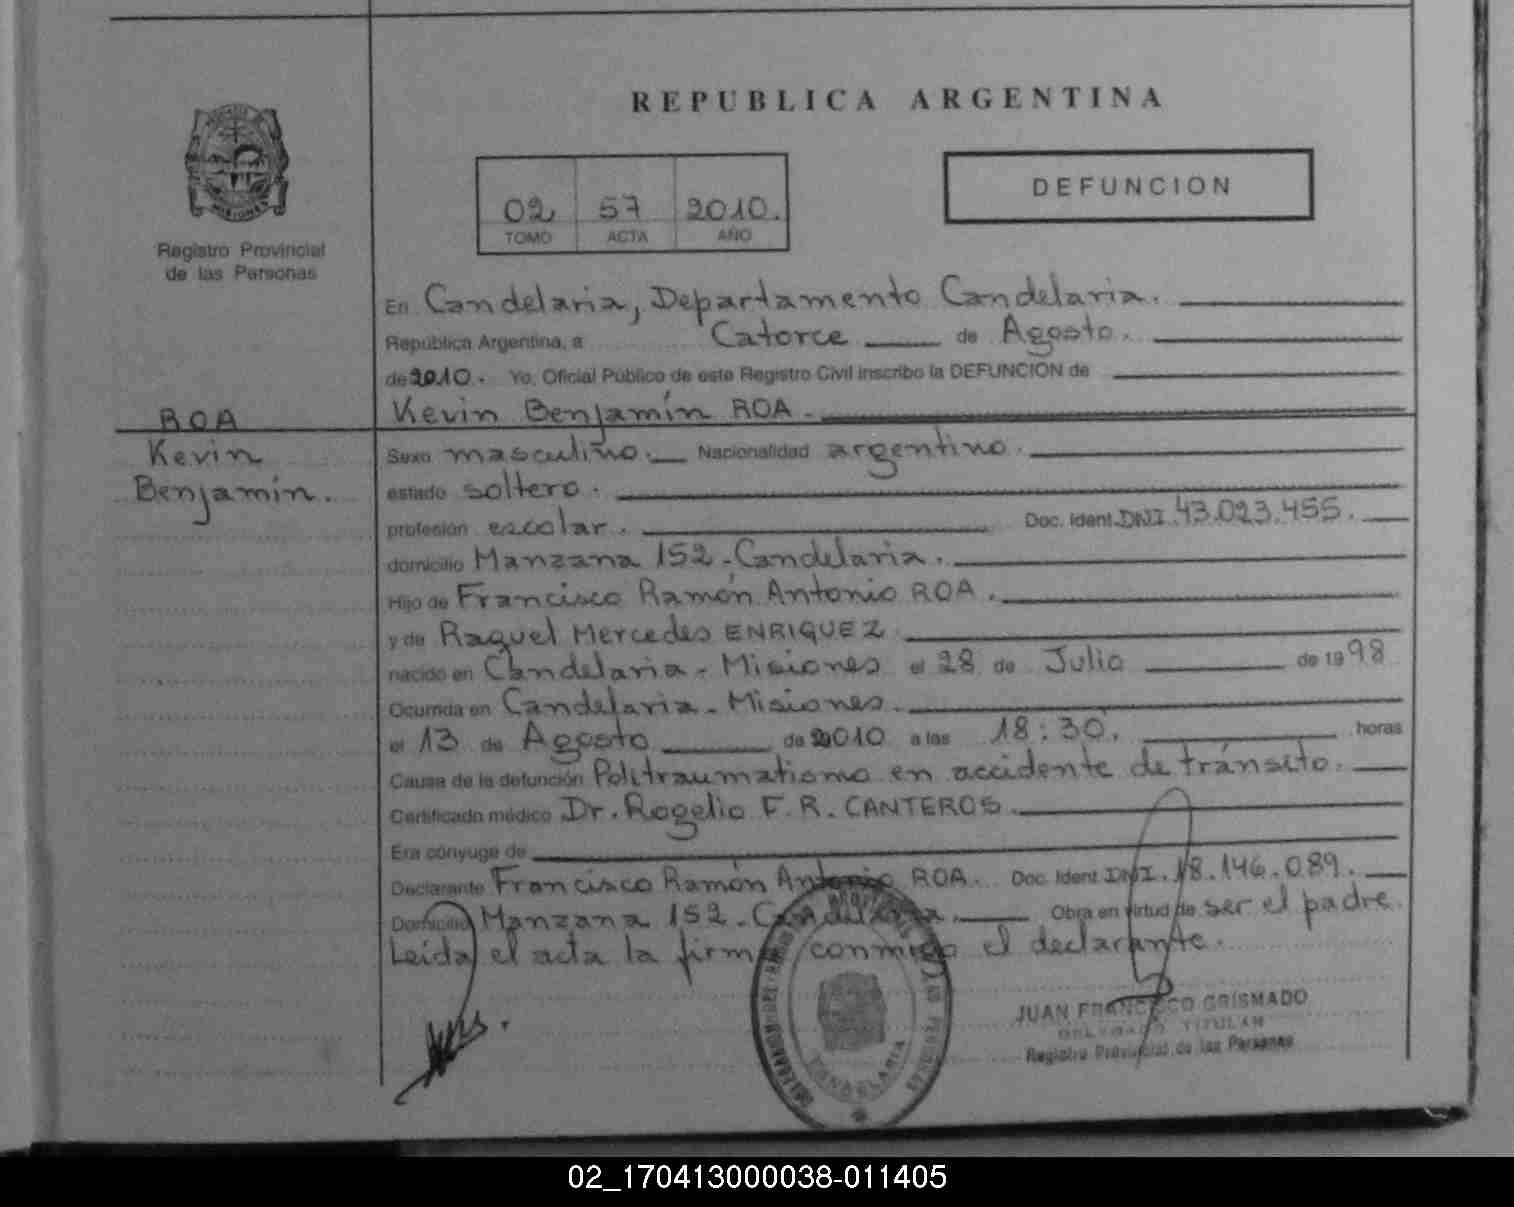 REPUBLICA ARGENTINA
MISIONES
Registro Provincial
de las Personas
02 57 2010.
TOMO ACTA AÑO
DEFUNCION
En Candelaria, Departamento Candelaria.
República Argentina, a Catorce de Agosto.
de 2010. Yo, Oficial Público de este Registro Civil inscribo la DEFUNCION de
Kevin Benjamín ROA.
ROA
Kevin
Benjamín.
Sexo masculino. Nacionalidad argentino.
estado soltero.
profesión escolar. Doc. Ident. DNI. 43.023.455.
domicilio Manzana 152 - Candelaria.
Hijo de Francisco Ramón Antonio ROA.
y de Raquel Mercedes ENRIQUEZ.
nacido en Candelaria - Misiones el 28 de Julio de 1998
Ocurrida en Candelaria - Misiones.
el 13 de Agosto de 2010 a las 18:30. horas
Causa de la defunción Politraumatismo en accidente de tránsito.
Certificado médico Dr. Rogelio F. R. CANTEROS.
Era cónyuge de
Declarante Francisco Ramón Antonio ROA. Doc. Ident. DNI. 18.146.089.
Domicilio Manzana 152 - Candelaria. Obra en virtud de ser el padre.
Leída el acta la firma conmigo el declarante.
JUAN FRANCISCO GRISMADO
DELEGADO TITULAR
Registro Provincial de las Personas
CANDELARIA
02_170413000038-011405